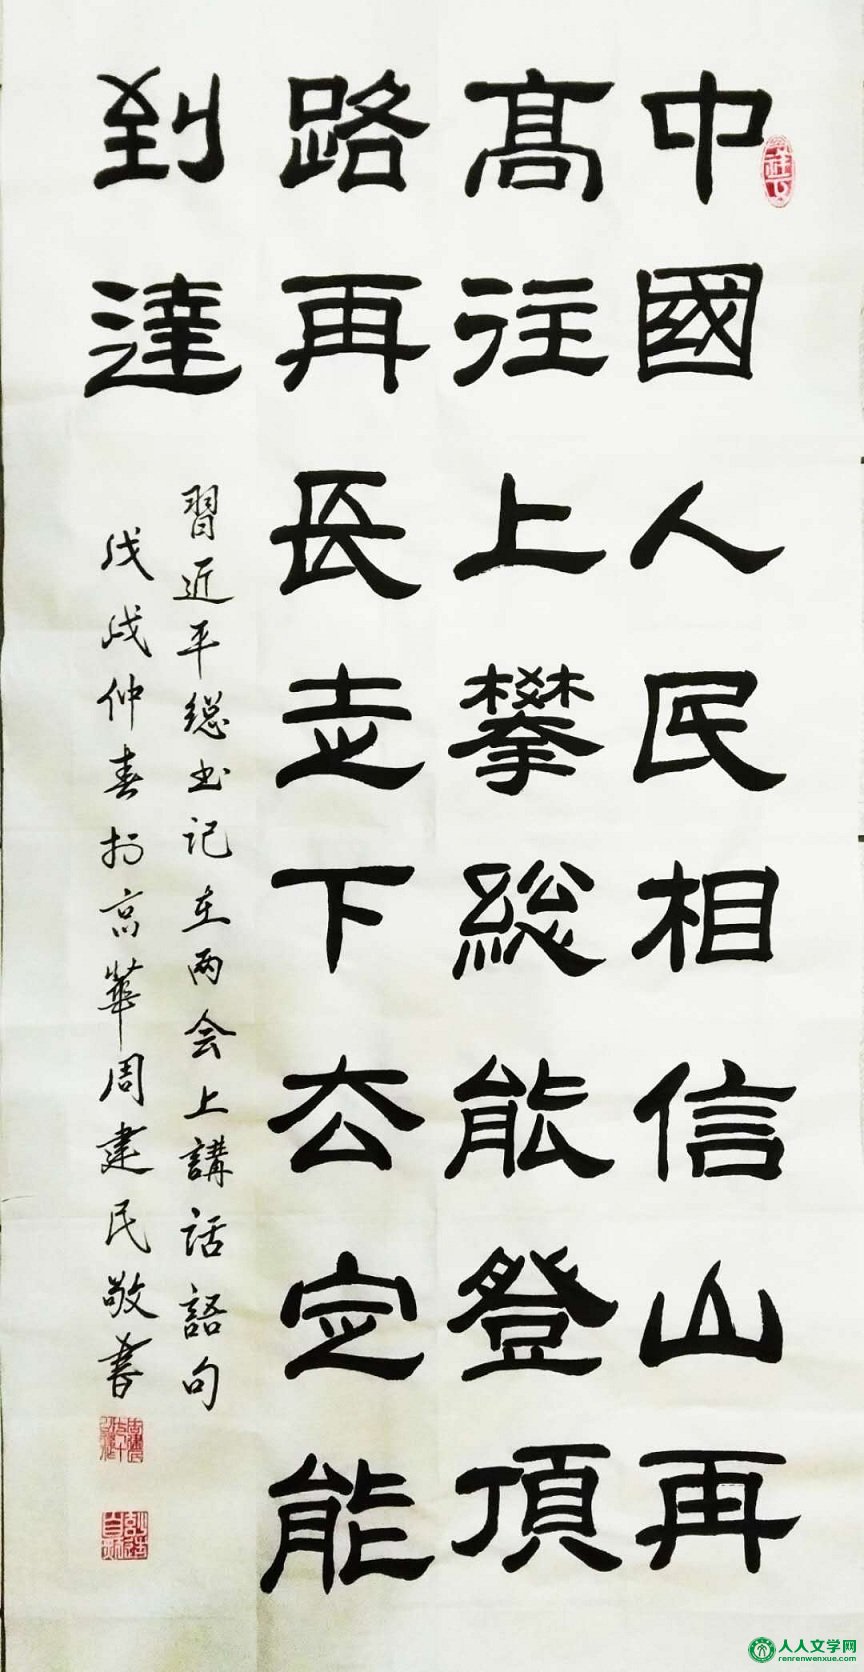 中國人民相信山再
髙往上攀総能登頂
路再長走下厺定能
到達
習近平總书记在两会上講话語句
戊戌仲春於京華周建民敬書
人人文学网
renrenwenxue.com